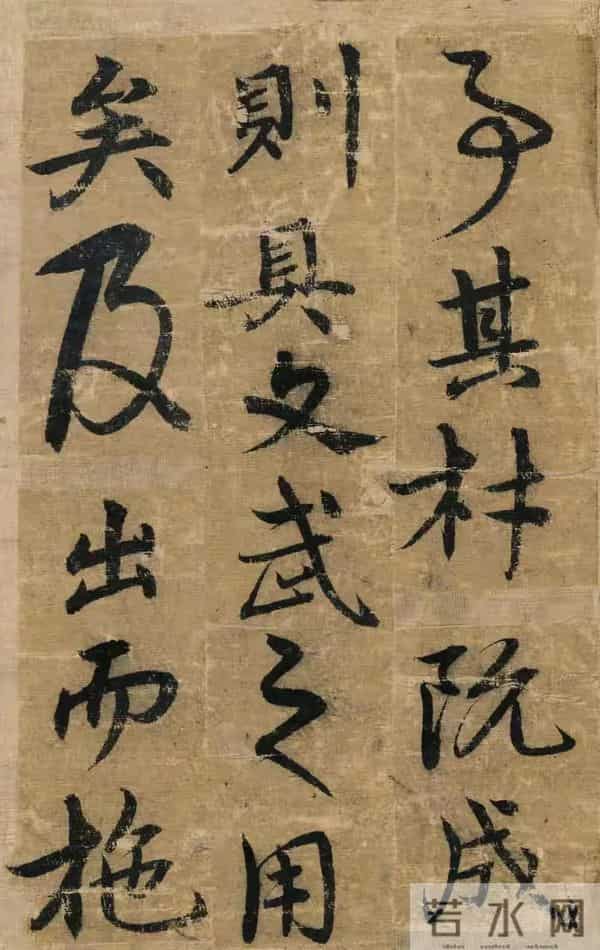 其材既成
則具文武之用
矣及出而施
若水网